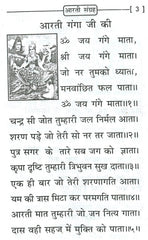 आरती संग्रह [ 3 ]
आरती गंगा जी की
ॐ जय गंगे माता,
श्री जय गंगे माता।
जो नर तुमको ध्याता,
मनवांछित फल पाता।
ॐ जय गंगे माता॥१॥
चन्द्र सी जोत तुम्हारी जल निर्मल आता।
शरण पड़े जो तेरी सो नर तर जाता॥२॥
पुत्र सगर के तारे सब जग को ज्ञाता।
कृपा दृष्टि तुम्हारी त्रिभुवन सुख दाता॥३॥
एक ही बार जो तेरी शरणागति आता।
यम की त्रास मिटा कर परमगति पाता॥४॥
आरती मात तुम्हारी जो जन नित्य गाता।
दास वही सहज में मुक्ति को पाता॥५॥